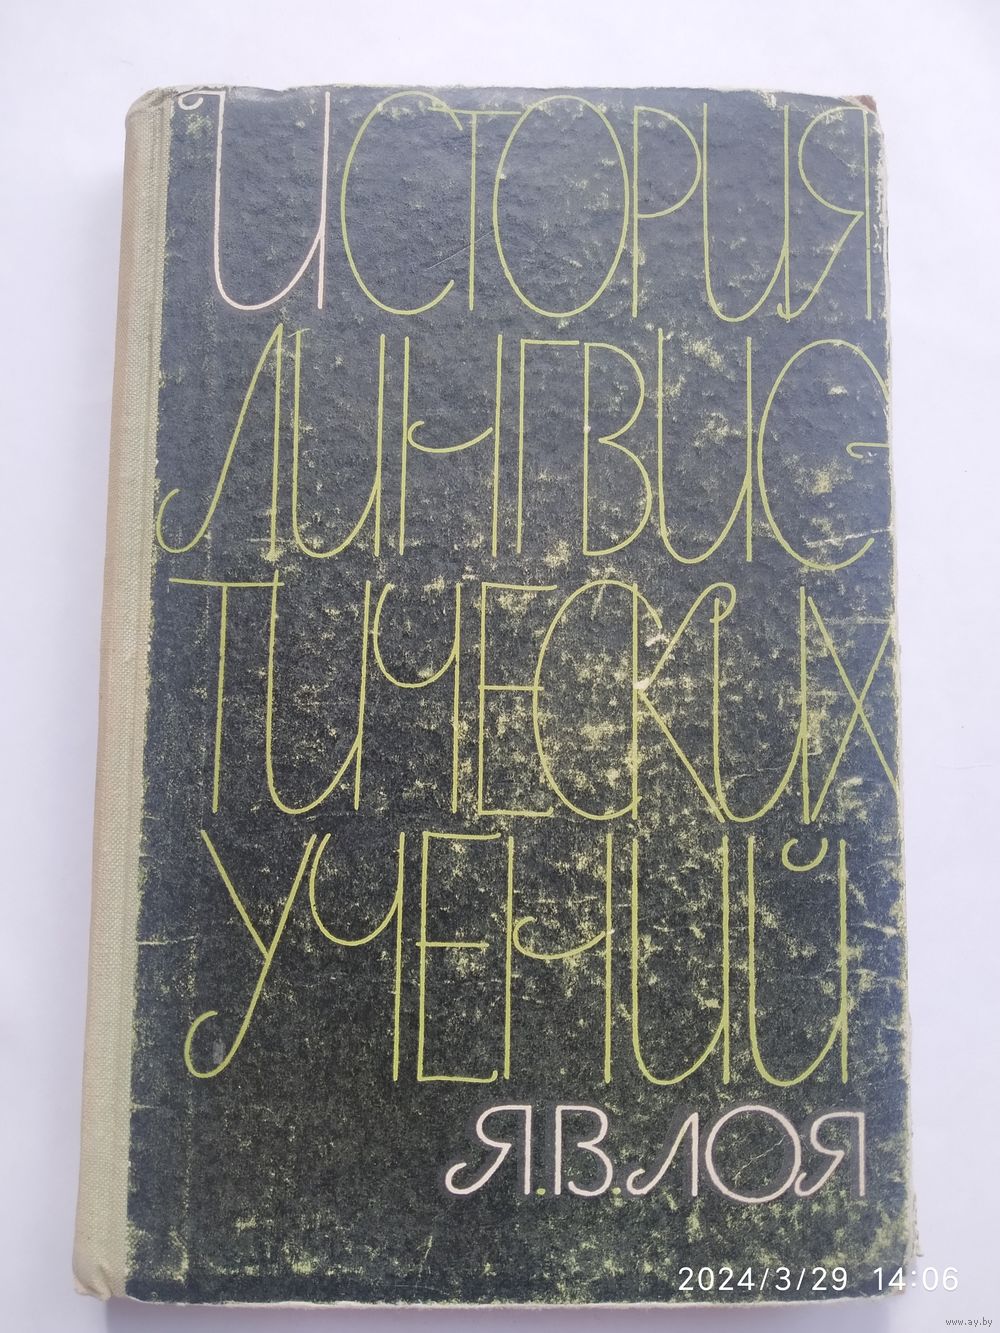 ИСТОРИЯ
ЛИНГВИС-
ТИЧЕСКИХ
УЧЕНИЙ
Я.В.ЛОЯ
2024/3/29 14:06
www.ay.by